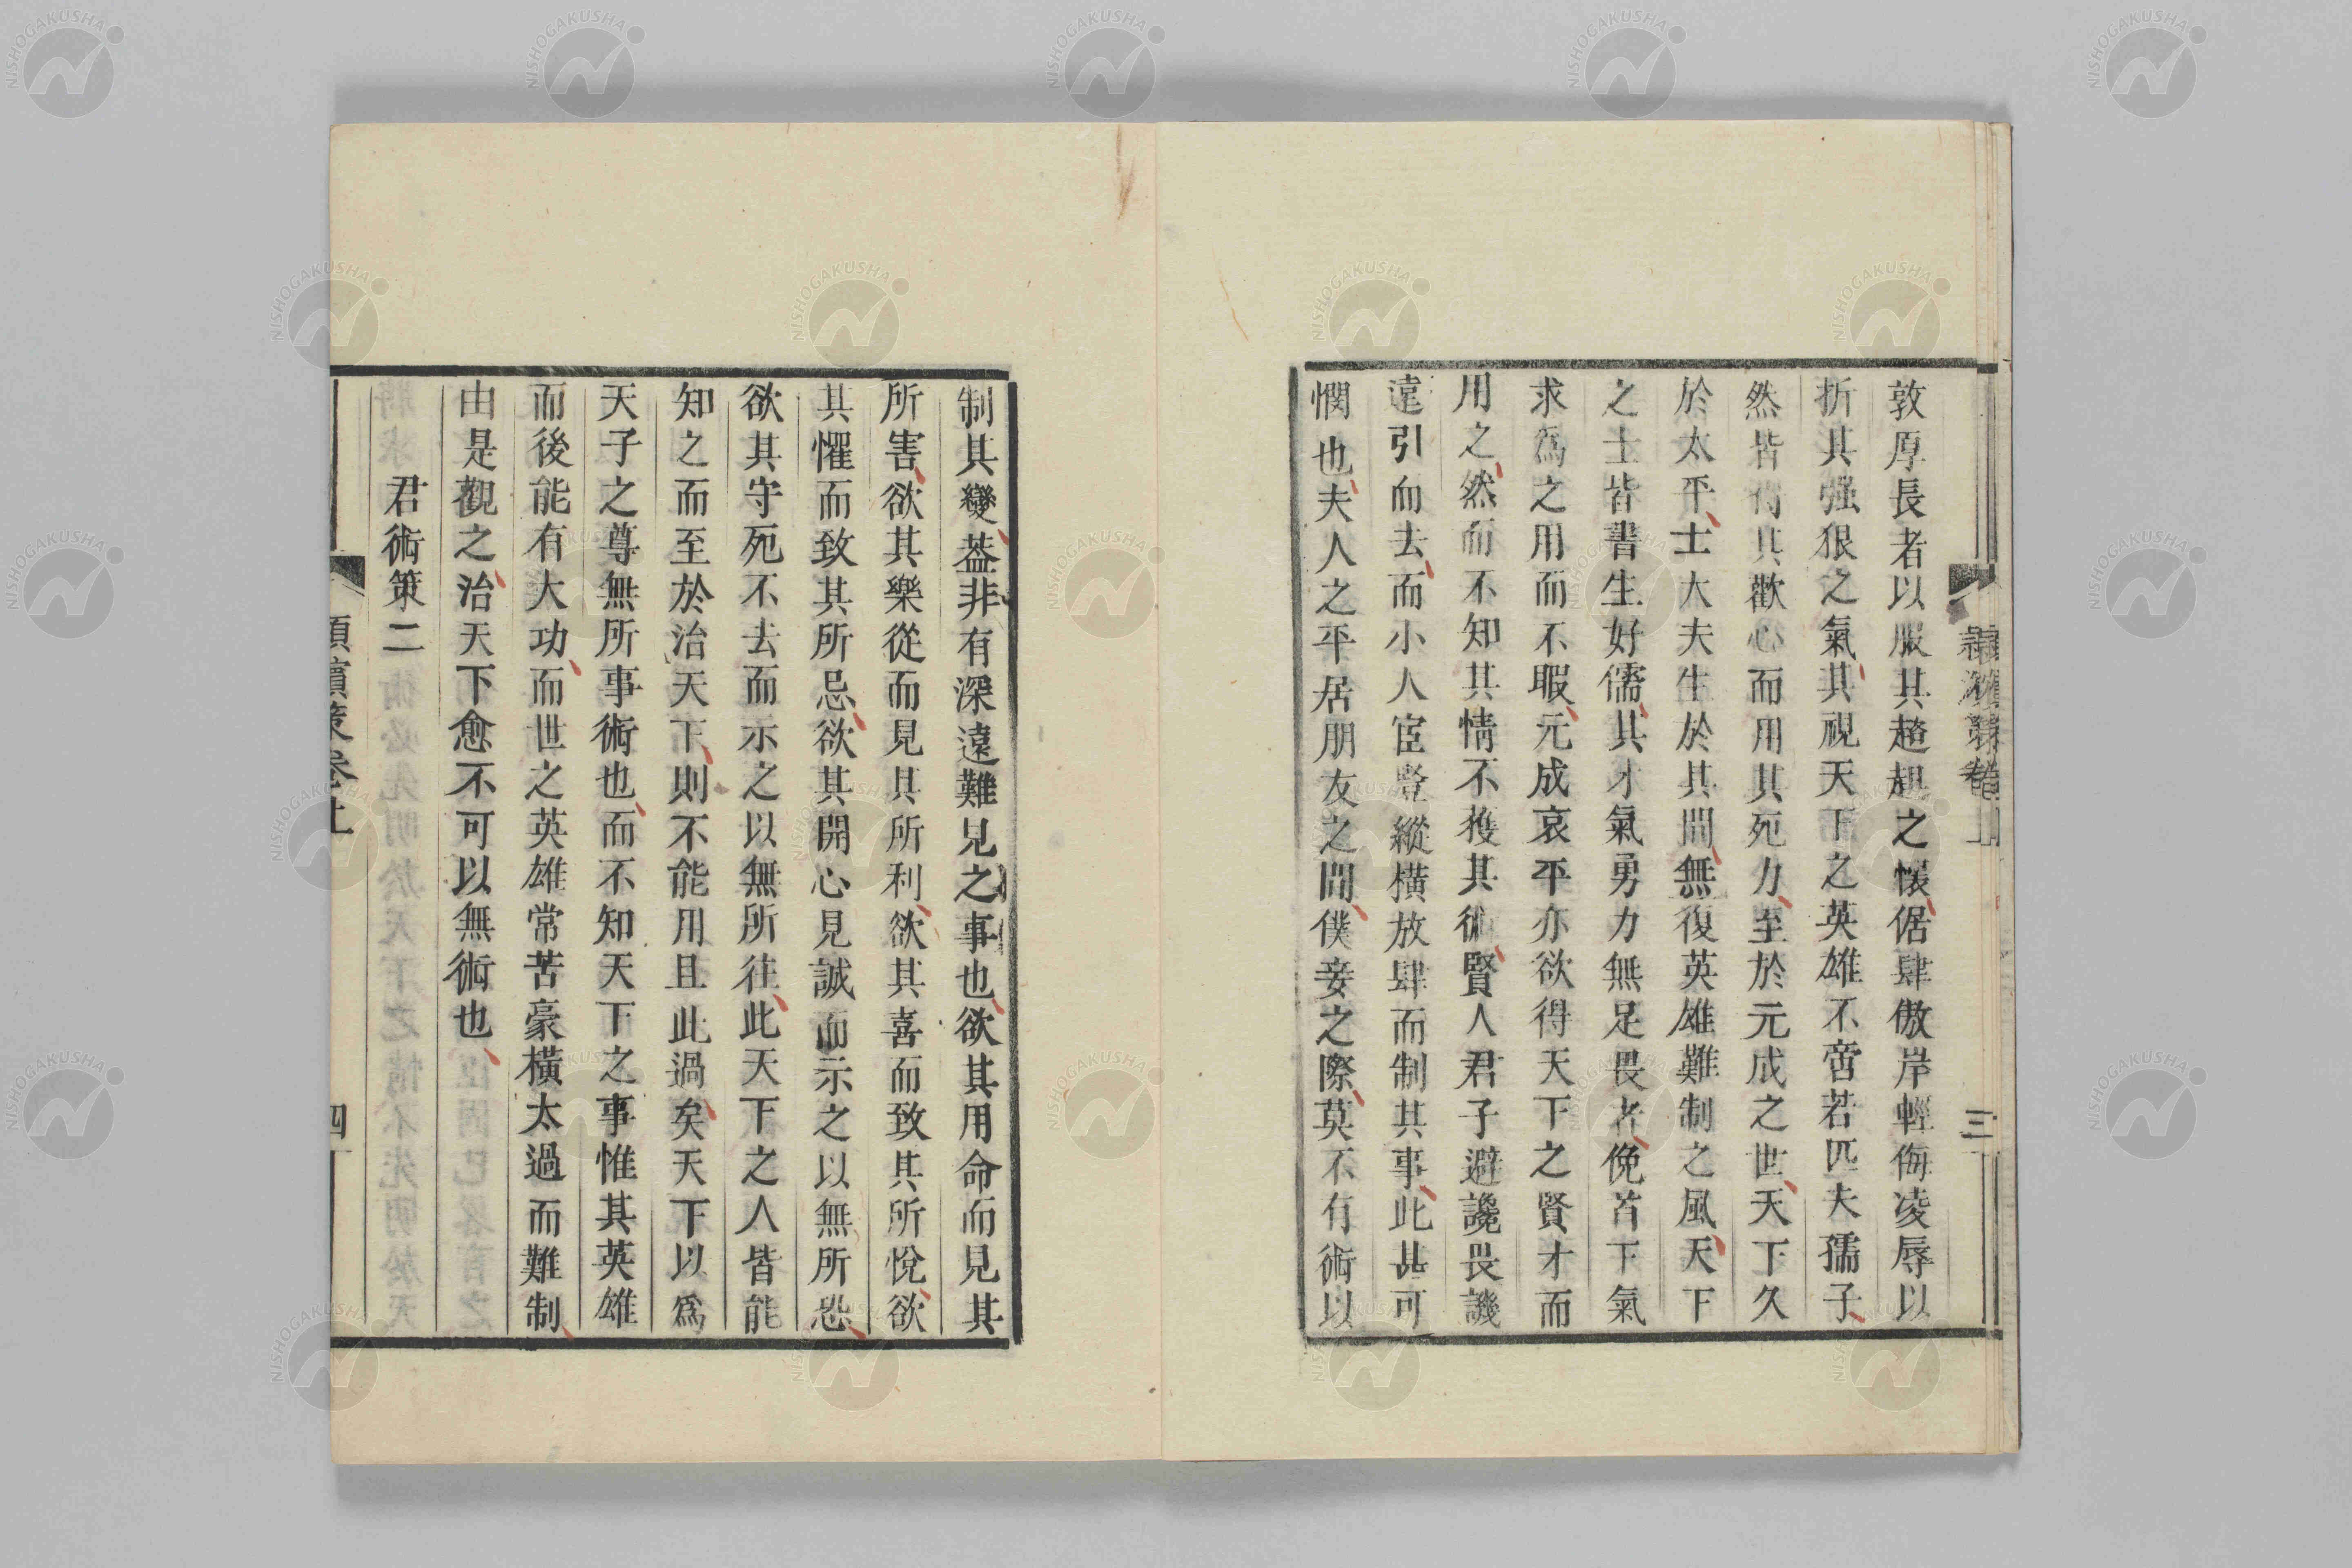 敦厚長者以服其趦趄之懷倨肆傲岸輕侮凌辱以
折其强狠之氣其視天下之英雄不啻若匹夫孺子
然皆得其歡心而用其死力至於元成之世天下久
於太平士大夫生於其間無復英雄難制之風天下
之士皆書生好儒其才氣勇力無足畏者俛首下氣
求爲之用而不暇元成哀平亦欲得天下之賢才而
用之然而不知其情不獲其術賢人君子避讒畏譏
遠引而去而小人宦豎縱橫放肆而制其事此甚可
憫也夫人之平居朋友之間僕妾之際莫不有術以
三
制其變葢非有深遠難見之事也欲其用命而見其
所害欲其樂從而見其所利欲其喜而致其所悅欲
其懼而致其所忌欲其開心見誠而示之以無所恐
欲其守死不去而示之以無所往此天下之人皆能
知之而至於治天下則不能用且此過矣天下以爲
天子之尊無所事術也而不知天下之事惟其英雄
而後能有大功而世之英雄常苦豪橫太過而難制
由是觀之治天下愈不可以無術也
君術策二
潁濱策卷上
四
NISHOGAKUSHA